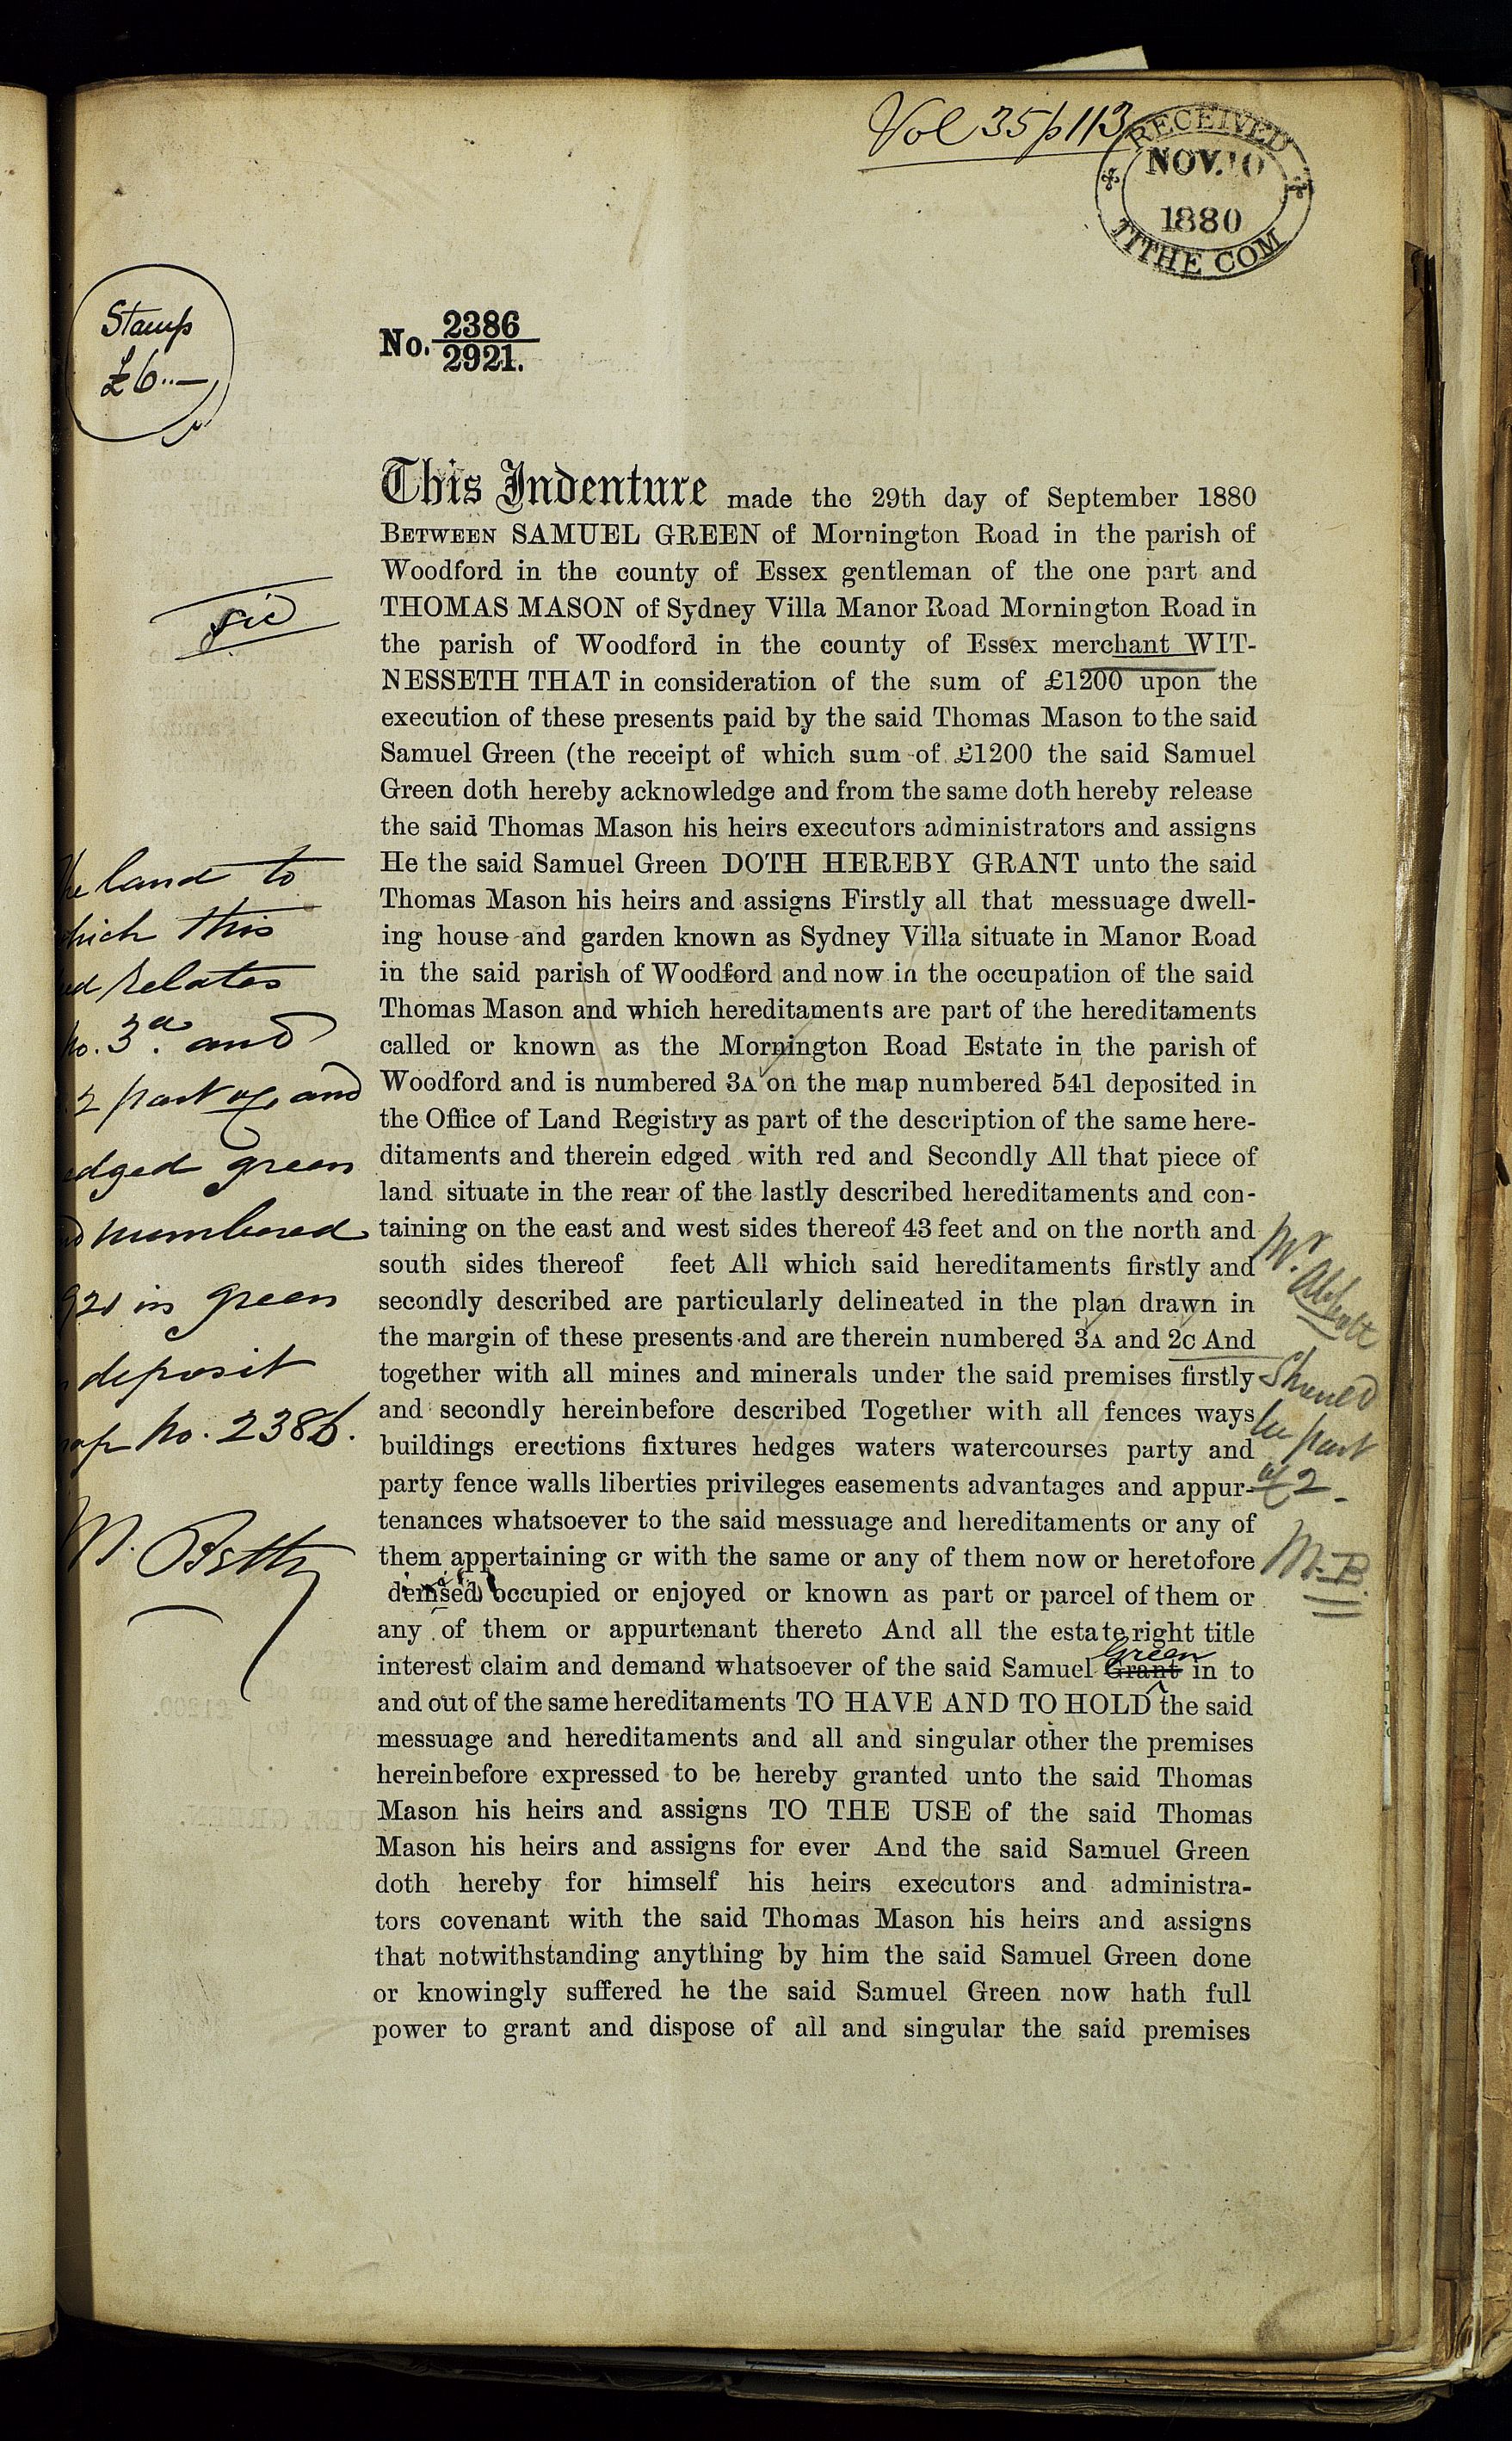 Vol 35 p 113
RECEIVED
NOV. 10
1880
TITHE COM
Stamp
£6..—
No. 2386
2921.
This Indenture made the 29th day of September 1880
BETWEEN SAMUEL GREEN of Mornington Road in the parish of
Woodford in the county of Essex gentleman of the one part and
THOMAS MASON of Sydney Villa Manor Road Mornington Road in
the parish of Woodford in the county of Essex merchant WIT-
NESSETH THAT in consideration of the sum of £1200 upon the
execution of these presents paid by the said Thomas Mason to the said
Samuel Green (the receipt of which sum of £1200 the said Samuel
Green doth hereby acknowledge and from the same doth hereby release
the said Thomas Mason his heirs executors administrators and assigns
He the said Samuel Green DOTH HEREBY GRANT unto the said
Thomas Mason his heirs and assigns Firstly all that messuage dwell-
ing house and garden known as Sydney Villa situate in Manor Road
in the said parish of Woodford and now in the occupation of the said
Thomas Mason and which hereditaments are part of the hereditaments
called or known as the Mornington Road Estate in the parish of
Woodford and is numbered 3A on the map numbered 541 deposited in
the Office of Land Registry as part of the description of the same here-
ditaments and therein edged with red and Secondly All that piece of
land situate in the rear of the lastly described hereditaments and con-
taining on the east and west sides thereof 43 feet and on the north and
south sides thereof feet All which said hereditaments firstly and
secondly described are particularly delineated in the plan drawn in
the margin of these presents and are therein numbered 3A and 2C And
together with all mines and minerals under the said premises firstly
and secondly hereinbefore described Together with all fences ways
buildings erections fixtures hedges waters watercourses party and
party fence walls liberties privileges easements advantages and appur-
tenances whatsoever to the said messuage and hereditaments or any of
them appertaining or with the same or any of them now or heretofore
demised occupied or enjoyed or known as part or parcel of them or
any of them or appurtenant thereto And all the estate right title
Green
interest claim and demand whatsoever of the said Samuel Grant in to
and out of the same hereditaments TO HAVE AND TO HOLD the said
messuage and hereditaments and all and singular other the premises
hereinbefore expressed to be hereby granted unto the said Thomas
Mason his heirs and assigns TO THE USE of the said Thomas
Mason his heirs and assigns for ever And the said Samuel Green
doth hereby for himself his heirs executors and administra-
tors covenant with the said Thomas Mason his heirs and assigns
that notwithstanding anything by him the said Samuel Green done
or knowingly suffered he the said Samuel Green now hath full
power to grant and dispose of all and singular the said premises
sic
he land to
hich this
ed relates
No. 3a. and
2 part of, and
edged green
d numbered
921 in green
deposit
ap No. 2386.
Mr. Abbott
Should
be part
of 2.
M.B.